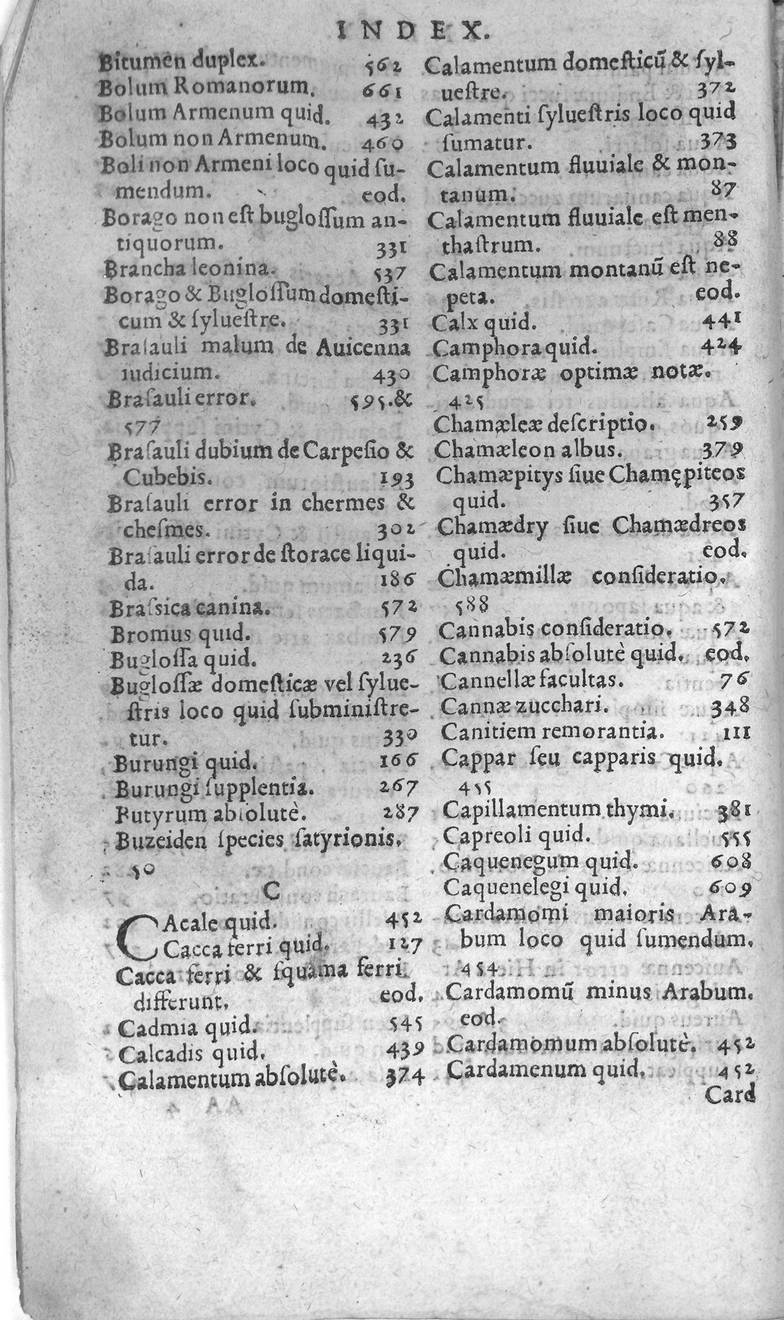 INDEX.
Bitumen duplex. 562
Bolum Romanorum. 661
Bolum Armenum quid. 432
Bolum non Armenum. 460
Boli non Armeni loco quid ſu-
mendum. eod.
Borago non eſt bugloſſum an-
tiquorum. 331
Brancha leonina. 537
Borago & Bugloſſum domeſti-
cum & ſylueſtre. 331
Braſauli malum de Auicenna
iudicium. 430
Braſauli error. 595.&
577
Braſauli dubium de Carpeſio &
Cubebis. 193
Braſauli error in chermes &
cheſmes. 302
Braſauli error de ſtorace liqui-
da. 186
Braſsica canina. 572
Bromus quid. 579
Bugloſſa quid. 236
Bugloſſæ domeſticæ vel ſylue-
ſtris loco quid ſubminiſtre-
tur. 330
Burungi quid. 166
Burungi ſupplentia. 267
Butyrum abſolutè. 287
Buzeiden ſpecies ſatyrionis.
50
C
CAcale quid. 452
Cacca ferri quid. 127
Cacca ferri & ſquama ferri
differunt. eod.
Cadmia quid. 545
Calcadis quid. 439
Calamentum abſolutè. 374
Calamentum domeſticũ & ſyl-
ueſtre. 372
Calamenti ſylueſtris loco quid
ſumatur. 373
Calamentum fluuiale & mon-
tanum. 87
Calamentum fluuiale eſt men-
thaſtrum. 88
Calamentum montanũ eſt ne-
peta. eod.
Calx quid. 441
Camphora quid. 424
Camphoræ optimæ notæ.
425
Chamæleæ deſcriptio. 259
Chamæleon albus. 379
Chamæpitys ſiue Chamępiteos
quid. 357
Chamædry ſiue Chamædreos
quid. eod.
Chamæmillæ conſideratio.
588
Cannabis conſideratio. 572
Cannabis abſolutè quid. eod.
Cannellæ facultas. 76
Cannæ zucchari. 348
Canitiem remorantia. 111
Cappar ſeu capparis quid.
455
Capillamentum thymi. 381
Capreoli quid. 555
Caquenegum quid. 608
Caquenelegi quid. 609
Cardamomi maioris Ara-
bum loco quid ſumendum.
454
Cardamomũ minus Arabum.
eod.
Cardamomum abſolutè. 452
Cardamenum quid. 452
Card